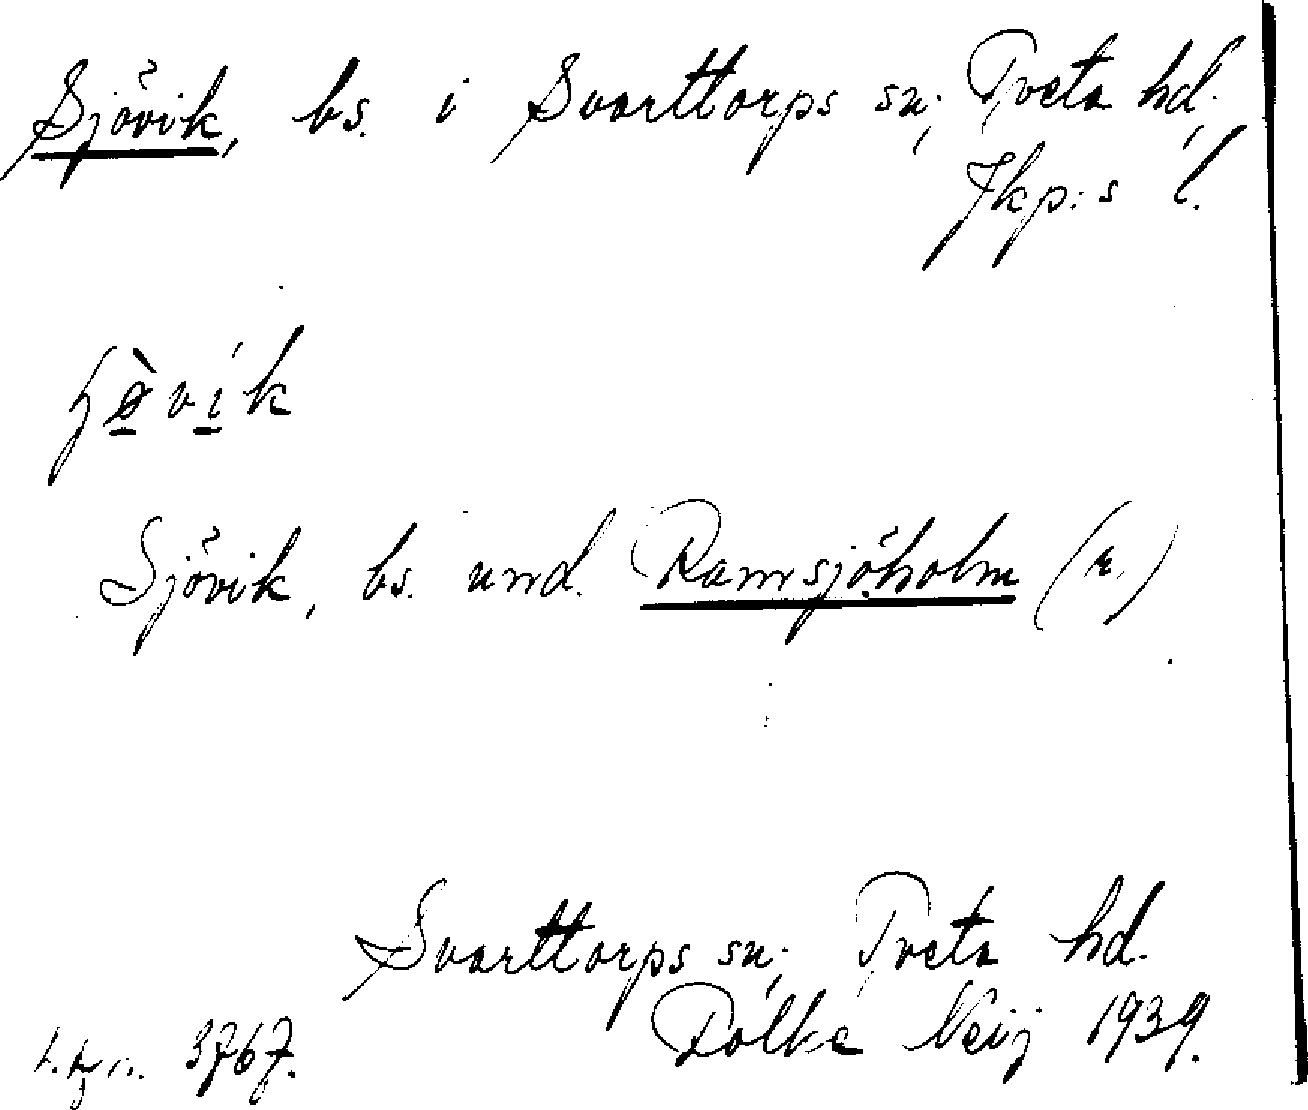 Sjövik, bs. i Svarttorps sn; Tveta hd.
Jkp:s l.
Sjövik, bs. und. Ramsjöholm (n.)
Svarttorps sn; Tveta hd.
Folke Neij 1939.
3767.